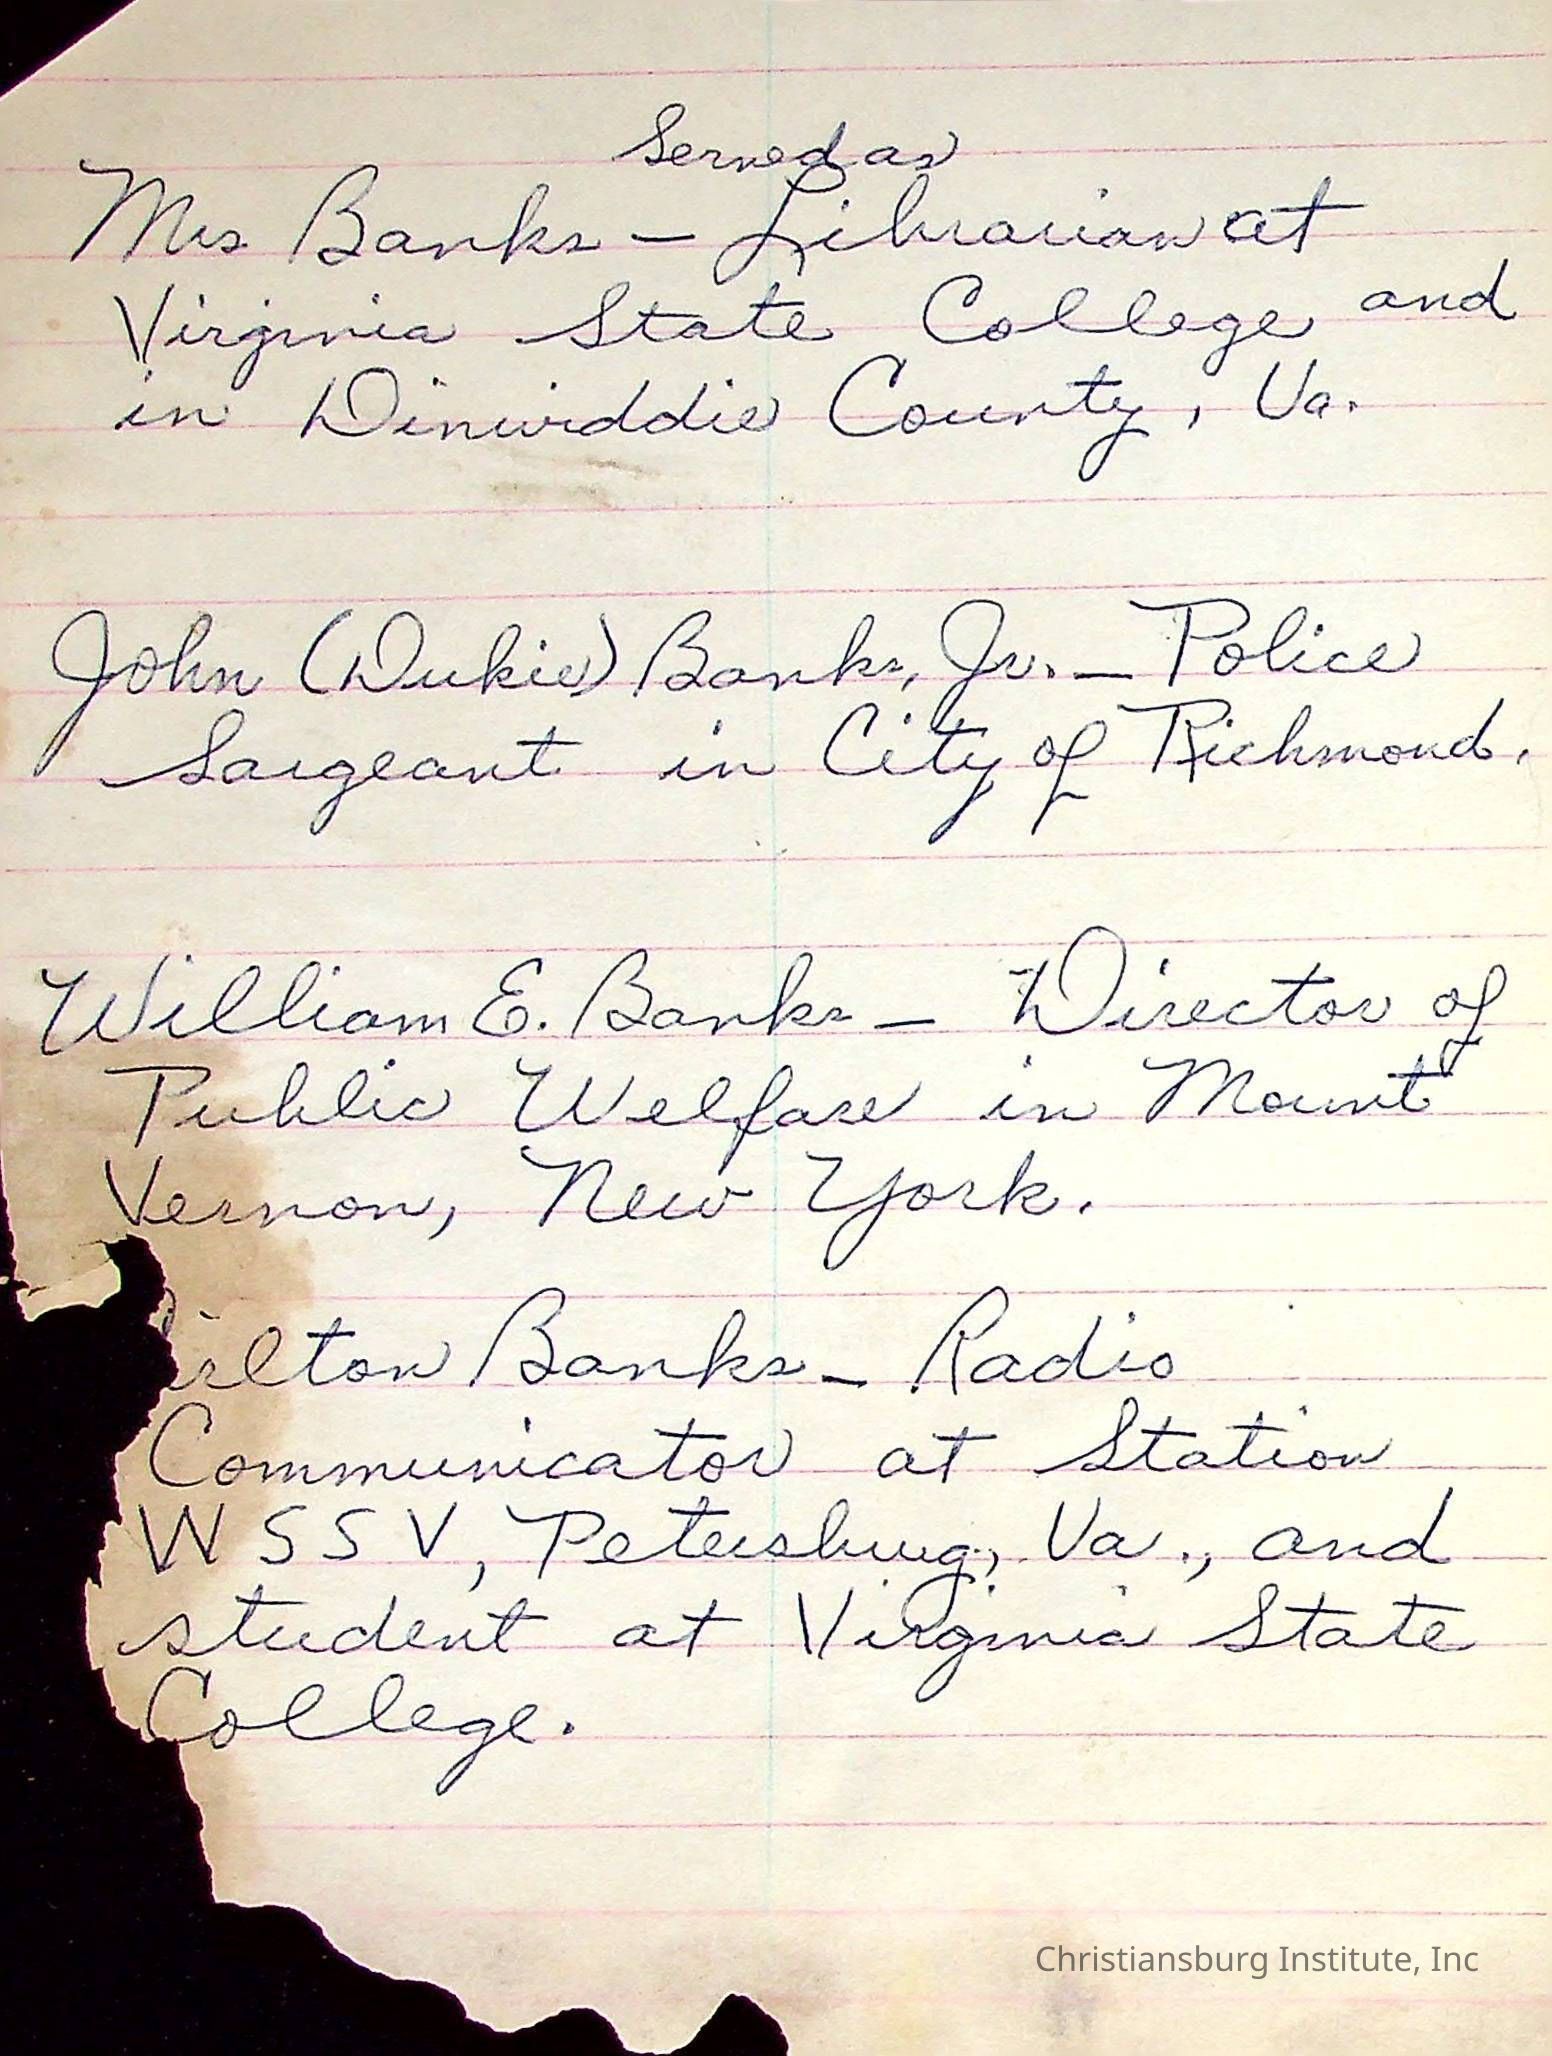 Served as
Mrs Banks – Librarian at
Virginia State College and
in Dinwiddie County, Va.
John (Dukie) Banks, Jr. – Police
Sargeant in City of Richmond.
William E. Banks – Director of
Public Welfare in Mount
Vernon, New York.
Banks – Radio
Communicator at Station
WSSV, Petersburg, Va., and
student at Virginia State
College.
Christiansburg Institute, Inc